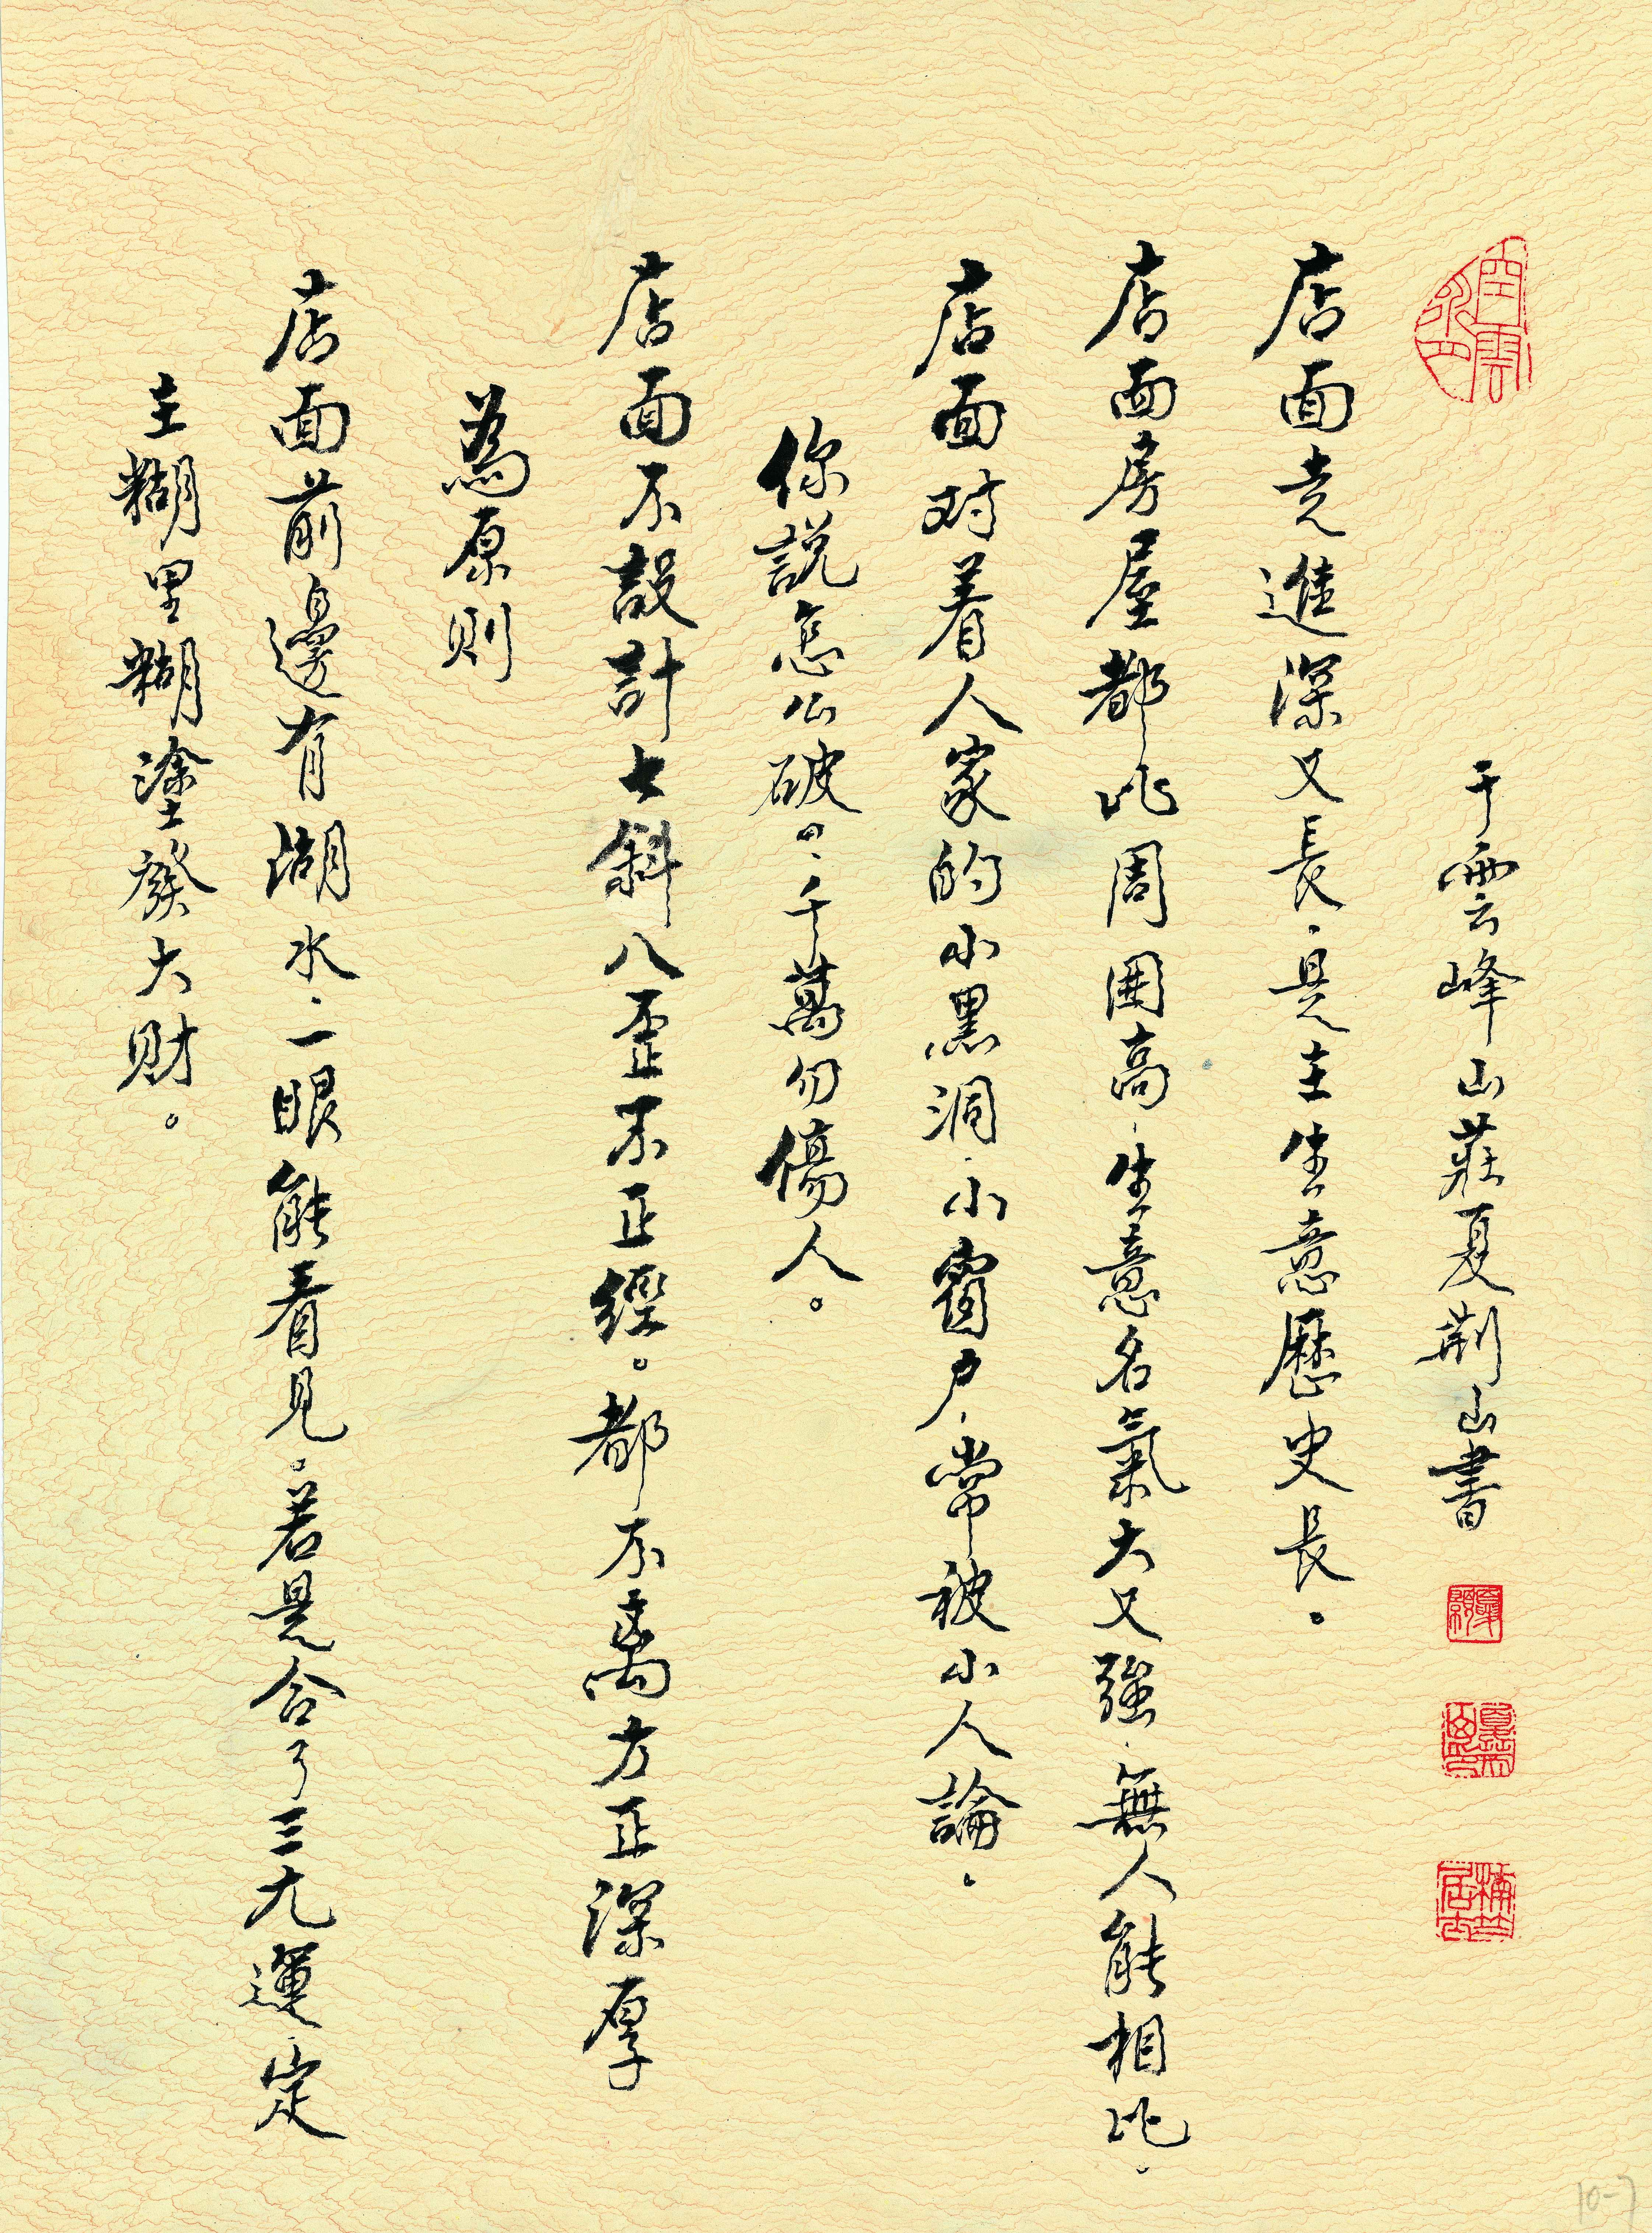 于雲峰山莊夏荆山書
店面走進深又長，是主生意歷史長。
店面房屋都比周圍高，生意名氣大又強，無人能相比。
店面对着人家的小黑洞，小窗户，常被小人論。
你說怎么破，千萬勿傷人。
店面不設計七斜八歪不正經。都不离方正深厚
為原則
店面前邊有湖水，一眼能看見。若是合了三元運定
主糊里糊塗發大财。
10-7